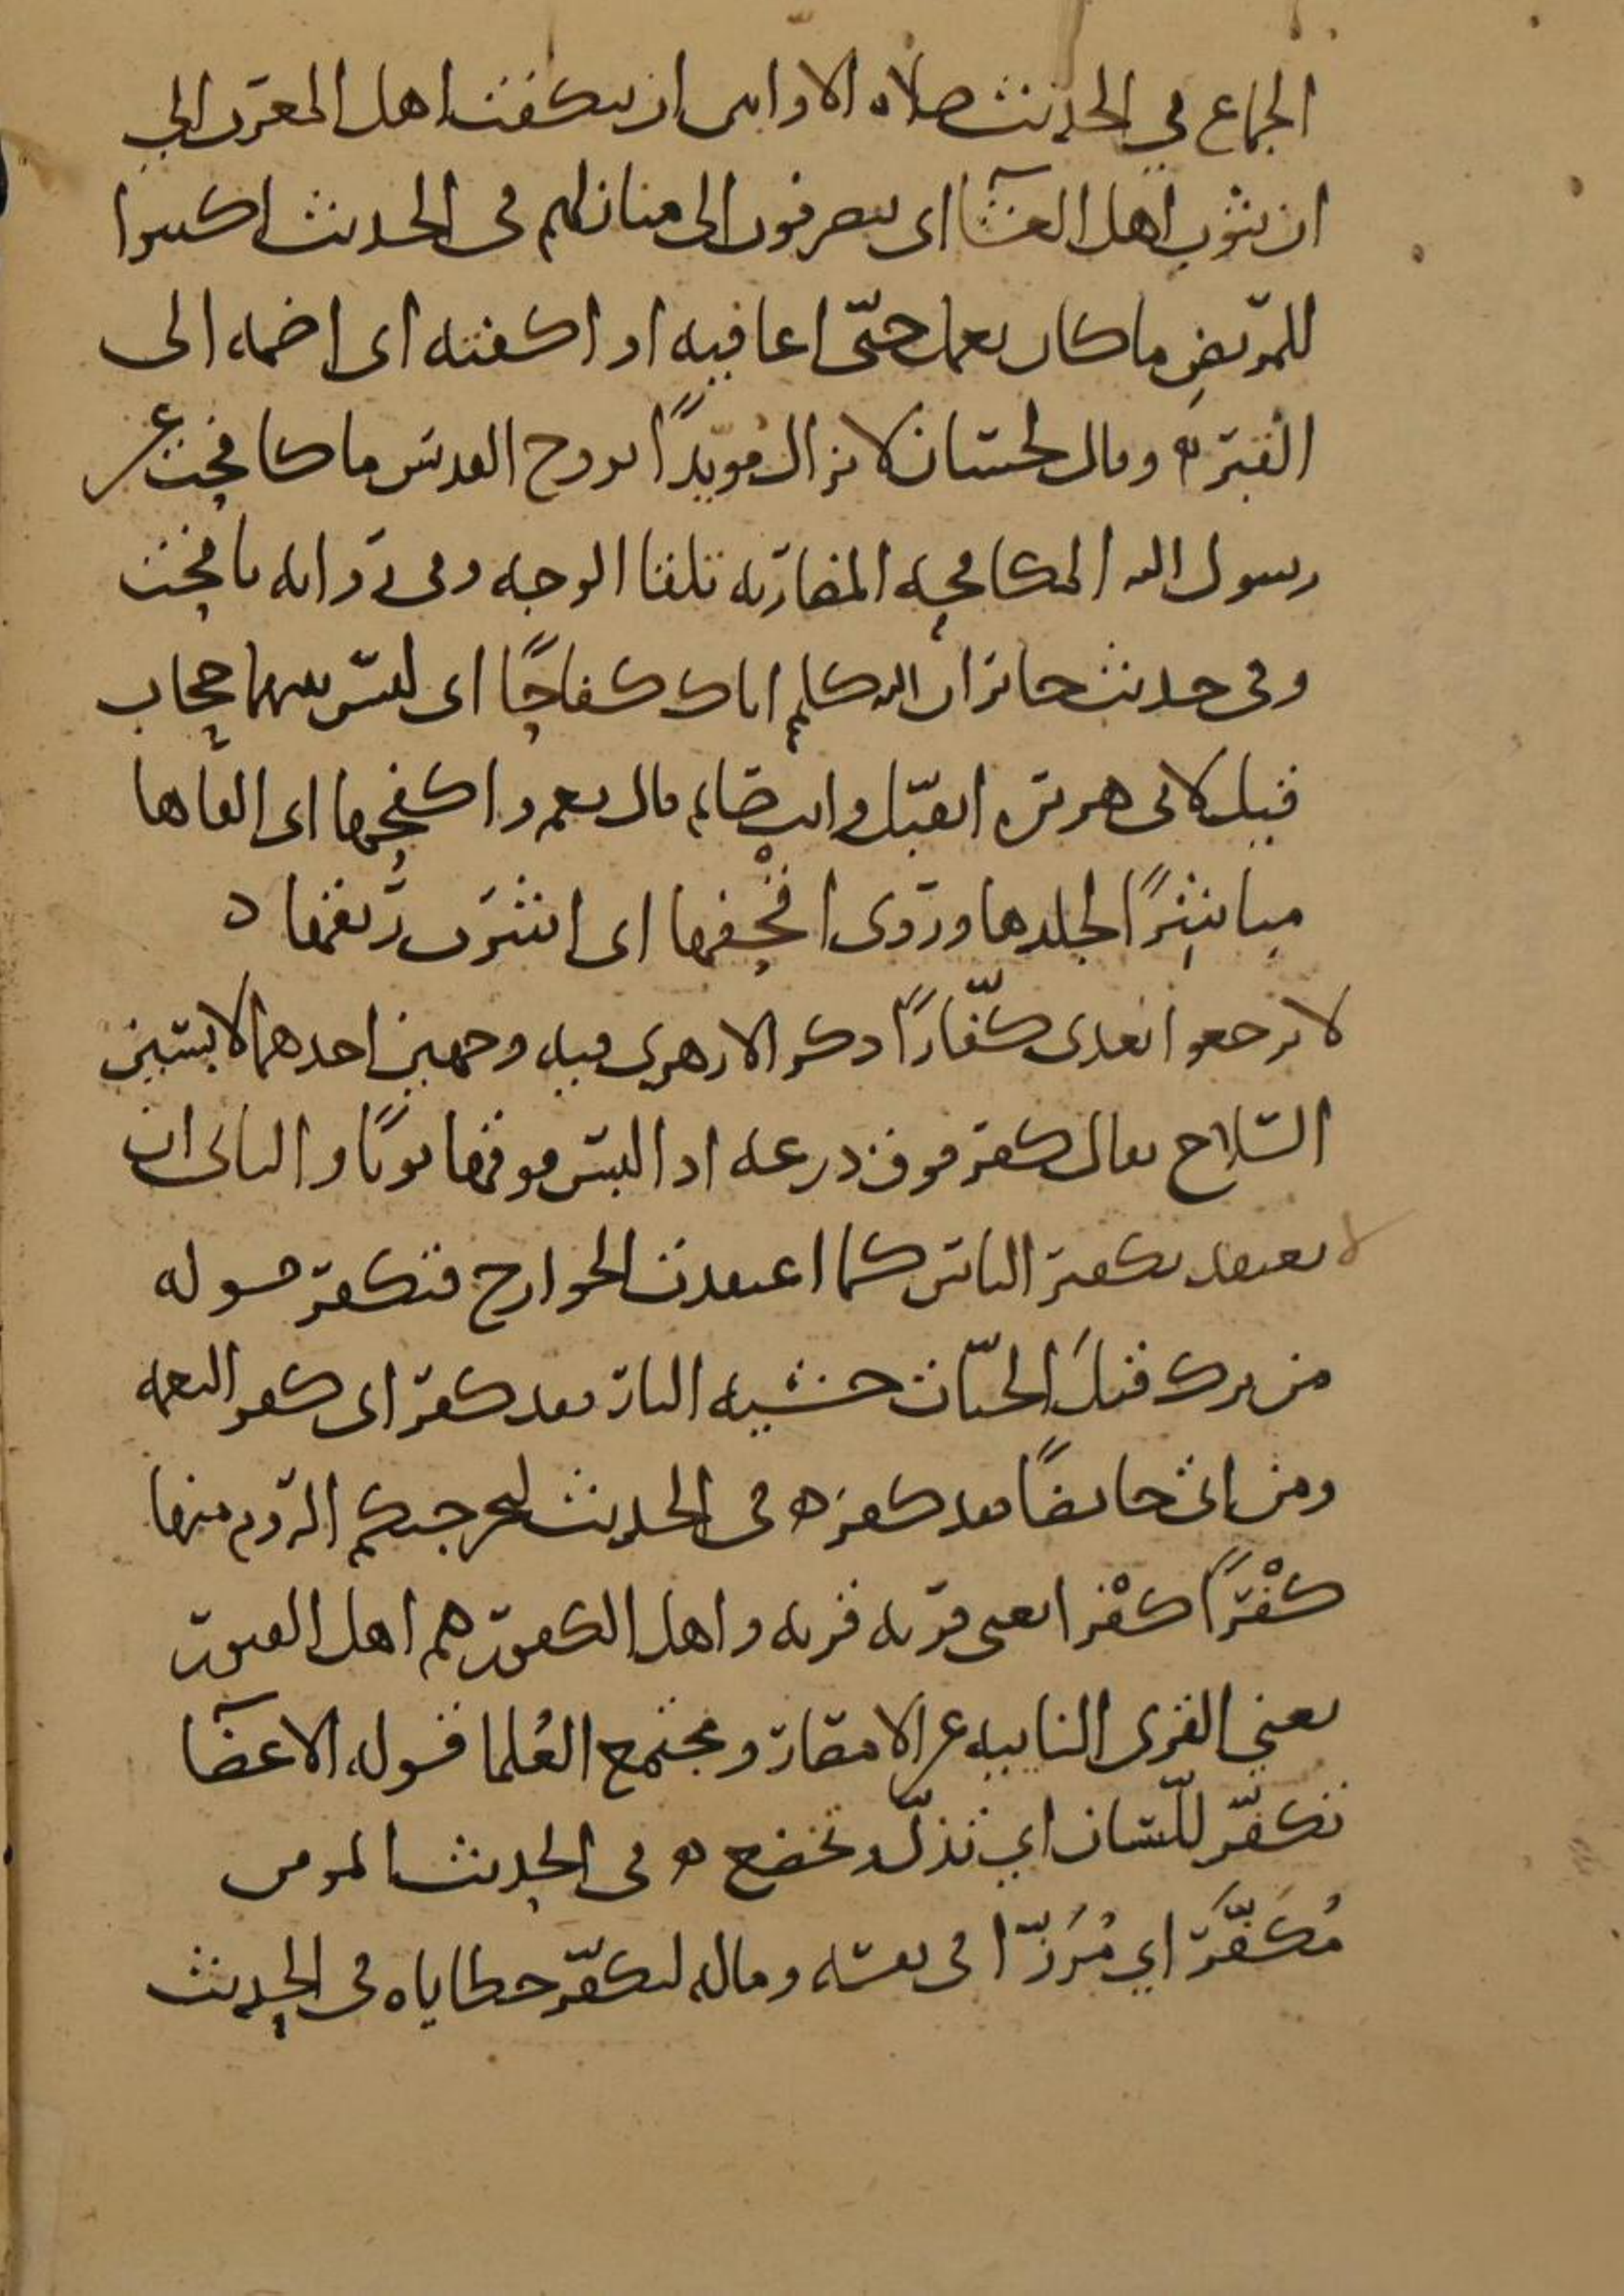 الجماع في الحديث صلاة الاوابين ان ينكفت اهل المغرب الي
ان يثوب اهل العشآ اى ينصرفون الى منازلهم في الحديث اكتبوا
للمريض ما كان يعمل حتّى اعافيه او اكفته اى اضمه الى
القبر ه وقال لحسّان لا تزال مُويّدًا بروح القدس ما كافحت عن
رسول الله المكافحة المضاربة تلقا الوجه وفي رواية نافحت
وفي حديث جابر ان الله كلم اباك كفاحًا اى ليس بينهما حجاب
قيل لابي هريرة اتقبّل وانت صايم قال نعم واكفحها اى القاها
مباشرًا لجلدها وروى اقْحفها اى اشرب ريقها ه
لا ترجعوا بعدى كفّارًا ذكر الازهرى فيه وجهين احدهما لابسين
السّلاح يقال كفر فوق درعه اذا لبس فوقها ثوبًا والثاني ان
لا يعتقد تكفير الناس كما اعتقدت الخوارج فتكفر قوله
من ترك قتلَ الحيّات خشية النار فقد كفر اى كفر النعمة
ومن اتى حايضًا فقد كفر ه في الحديث لتخرجنكم الروم منها
كفْرًا كفْرا يعني قرية قرية واهل الكفور هم اهل القبور
يعني القرى النايية عن الامصار ومجتمع العُلما قوله الاعضآ
تكفّر للّسان اي تذلّ وتخضع ه في الحديث المومن
مُكَفَّر اي مُرَزّا في نفسه وماله لتكفّر خطاياه في الحديث